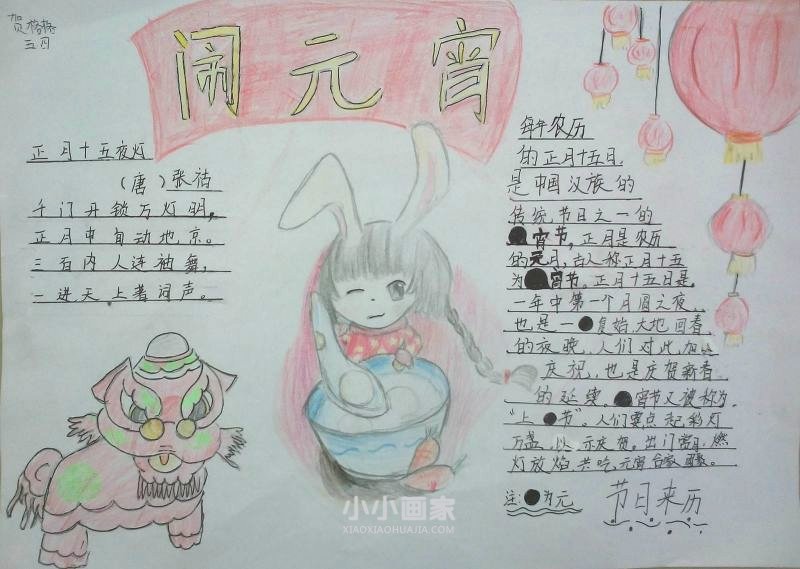 贺格格
三四
闹元宵
正月十五夜灯
（唐）张祜
千门开锁万灯明，
正月中旬动地京。
三百内人连袖舞，
一进天上著词声。
每年农历
的正月十五日
是中国汉族的
传统节日之一的
●宵节，正月是农历
的元月，古人称正月十五
为●宵节。正月十五日是
一年中第一个月圆之夜，
也是一●复始，大地回春
的夜晚，人们对此，加以
庆祝，也是庆贺新春
的延续，●宵节又被称为
“上●节”。人们要点起彩灯
万盏，以示庆贺。出门赏月，燃
灯放焰 共吃元宵
注：●为元
节日来历
小小画家
XIAOXIAOHUAJIA.COM